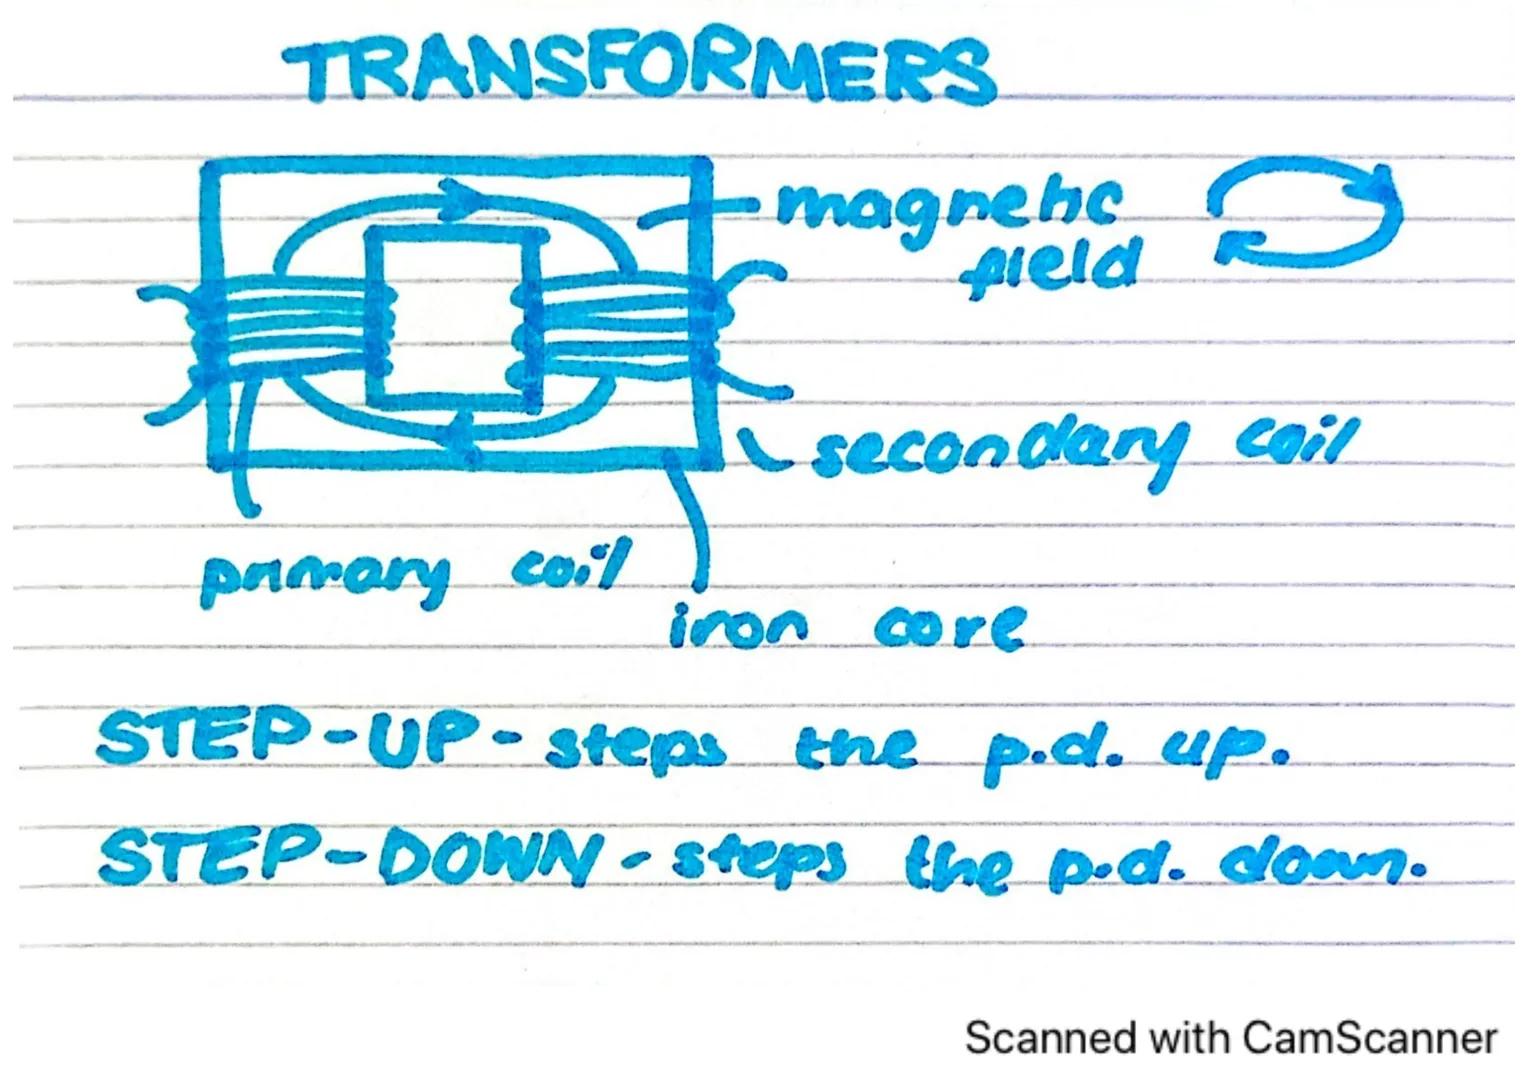 TRANSFORMERS
magnetic
field
secondary coil
primary coil
iron core
STEP-UP - steps the p.d. up.
STEP-DOWN - steps the p.d. down.
Scanned with CamScanner